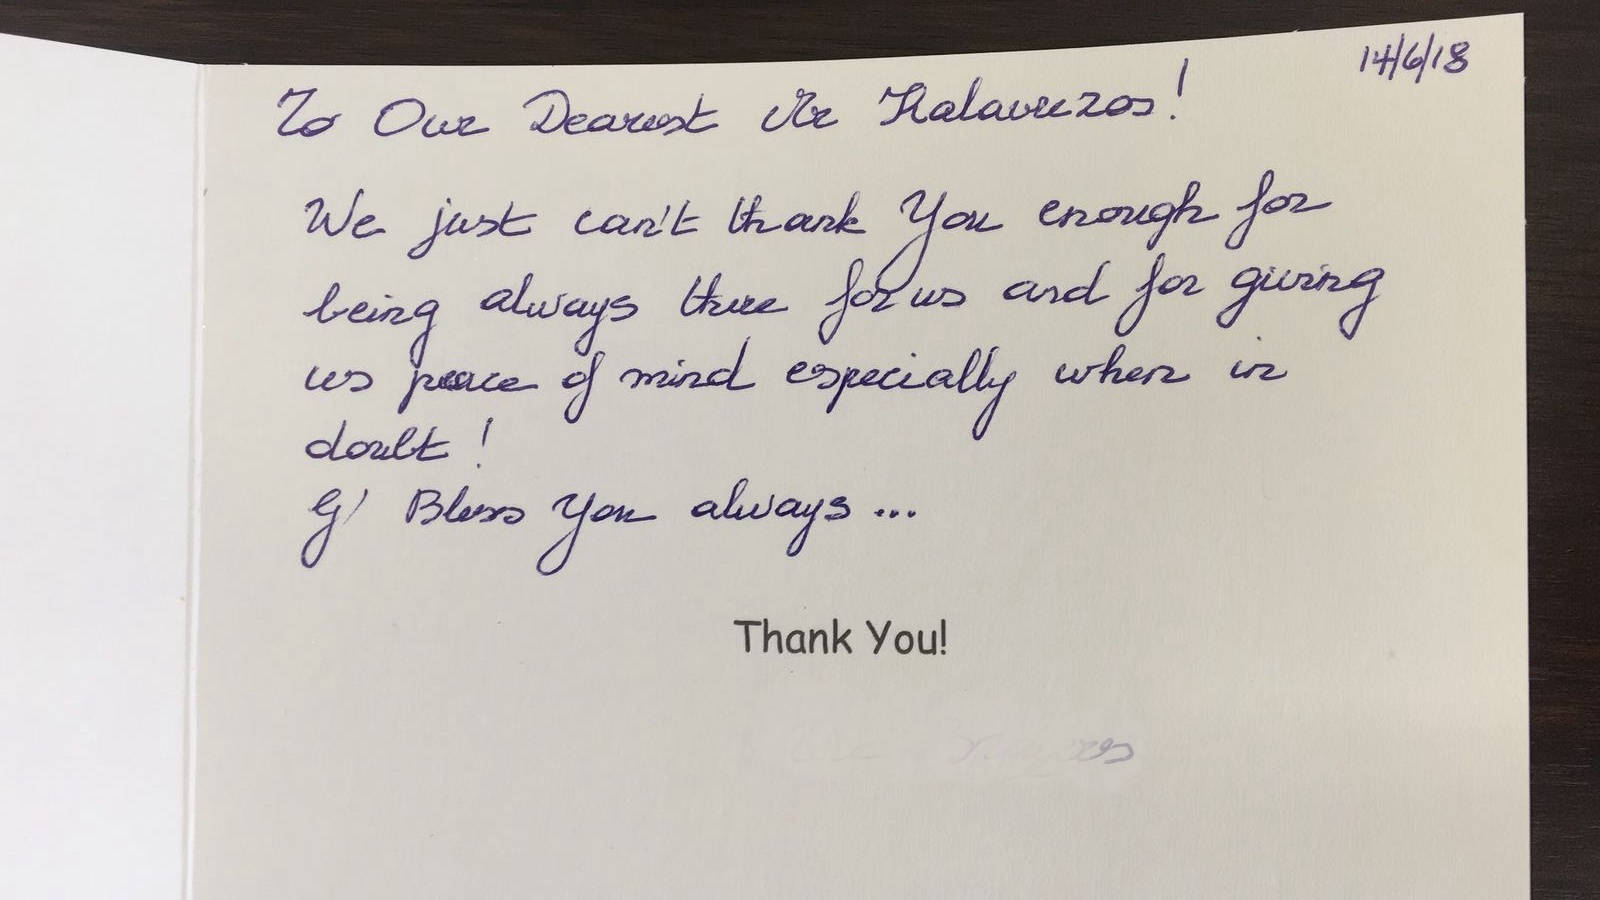 14/6/18
To Our Dearest Mr Kalavrezos!
We just can't thank You enough for
being always there for us and for giving
us peace of mind especially when in
doubt!
G' Bless You always...
Thank You!